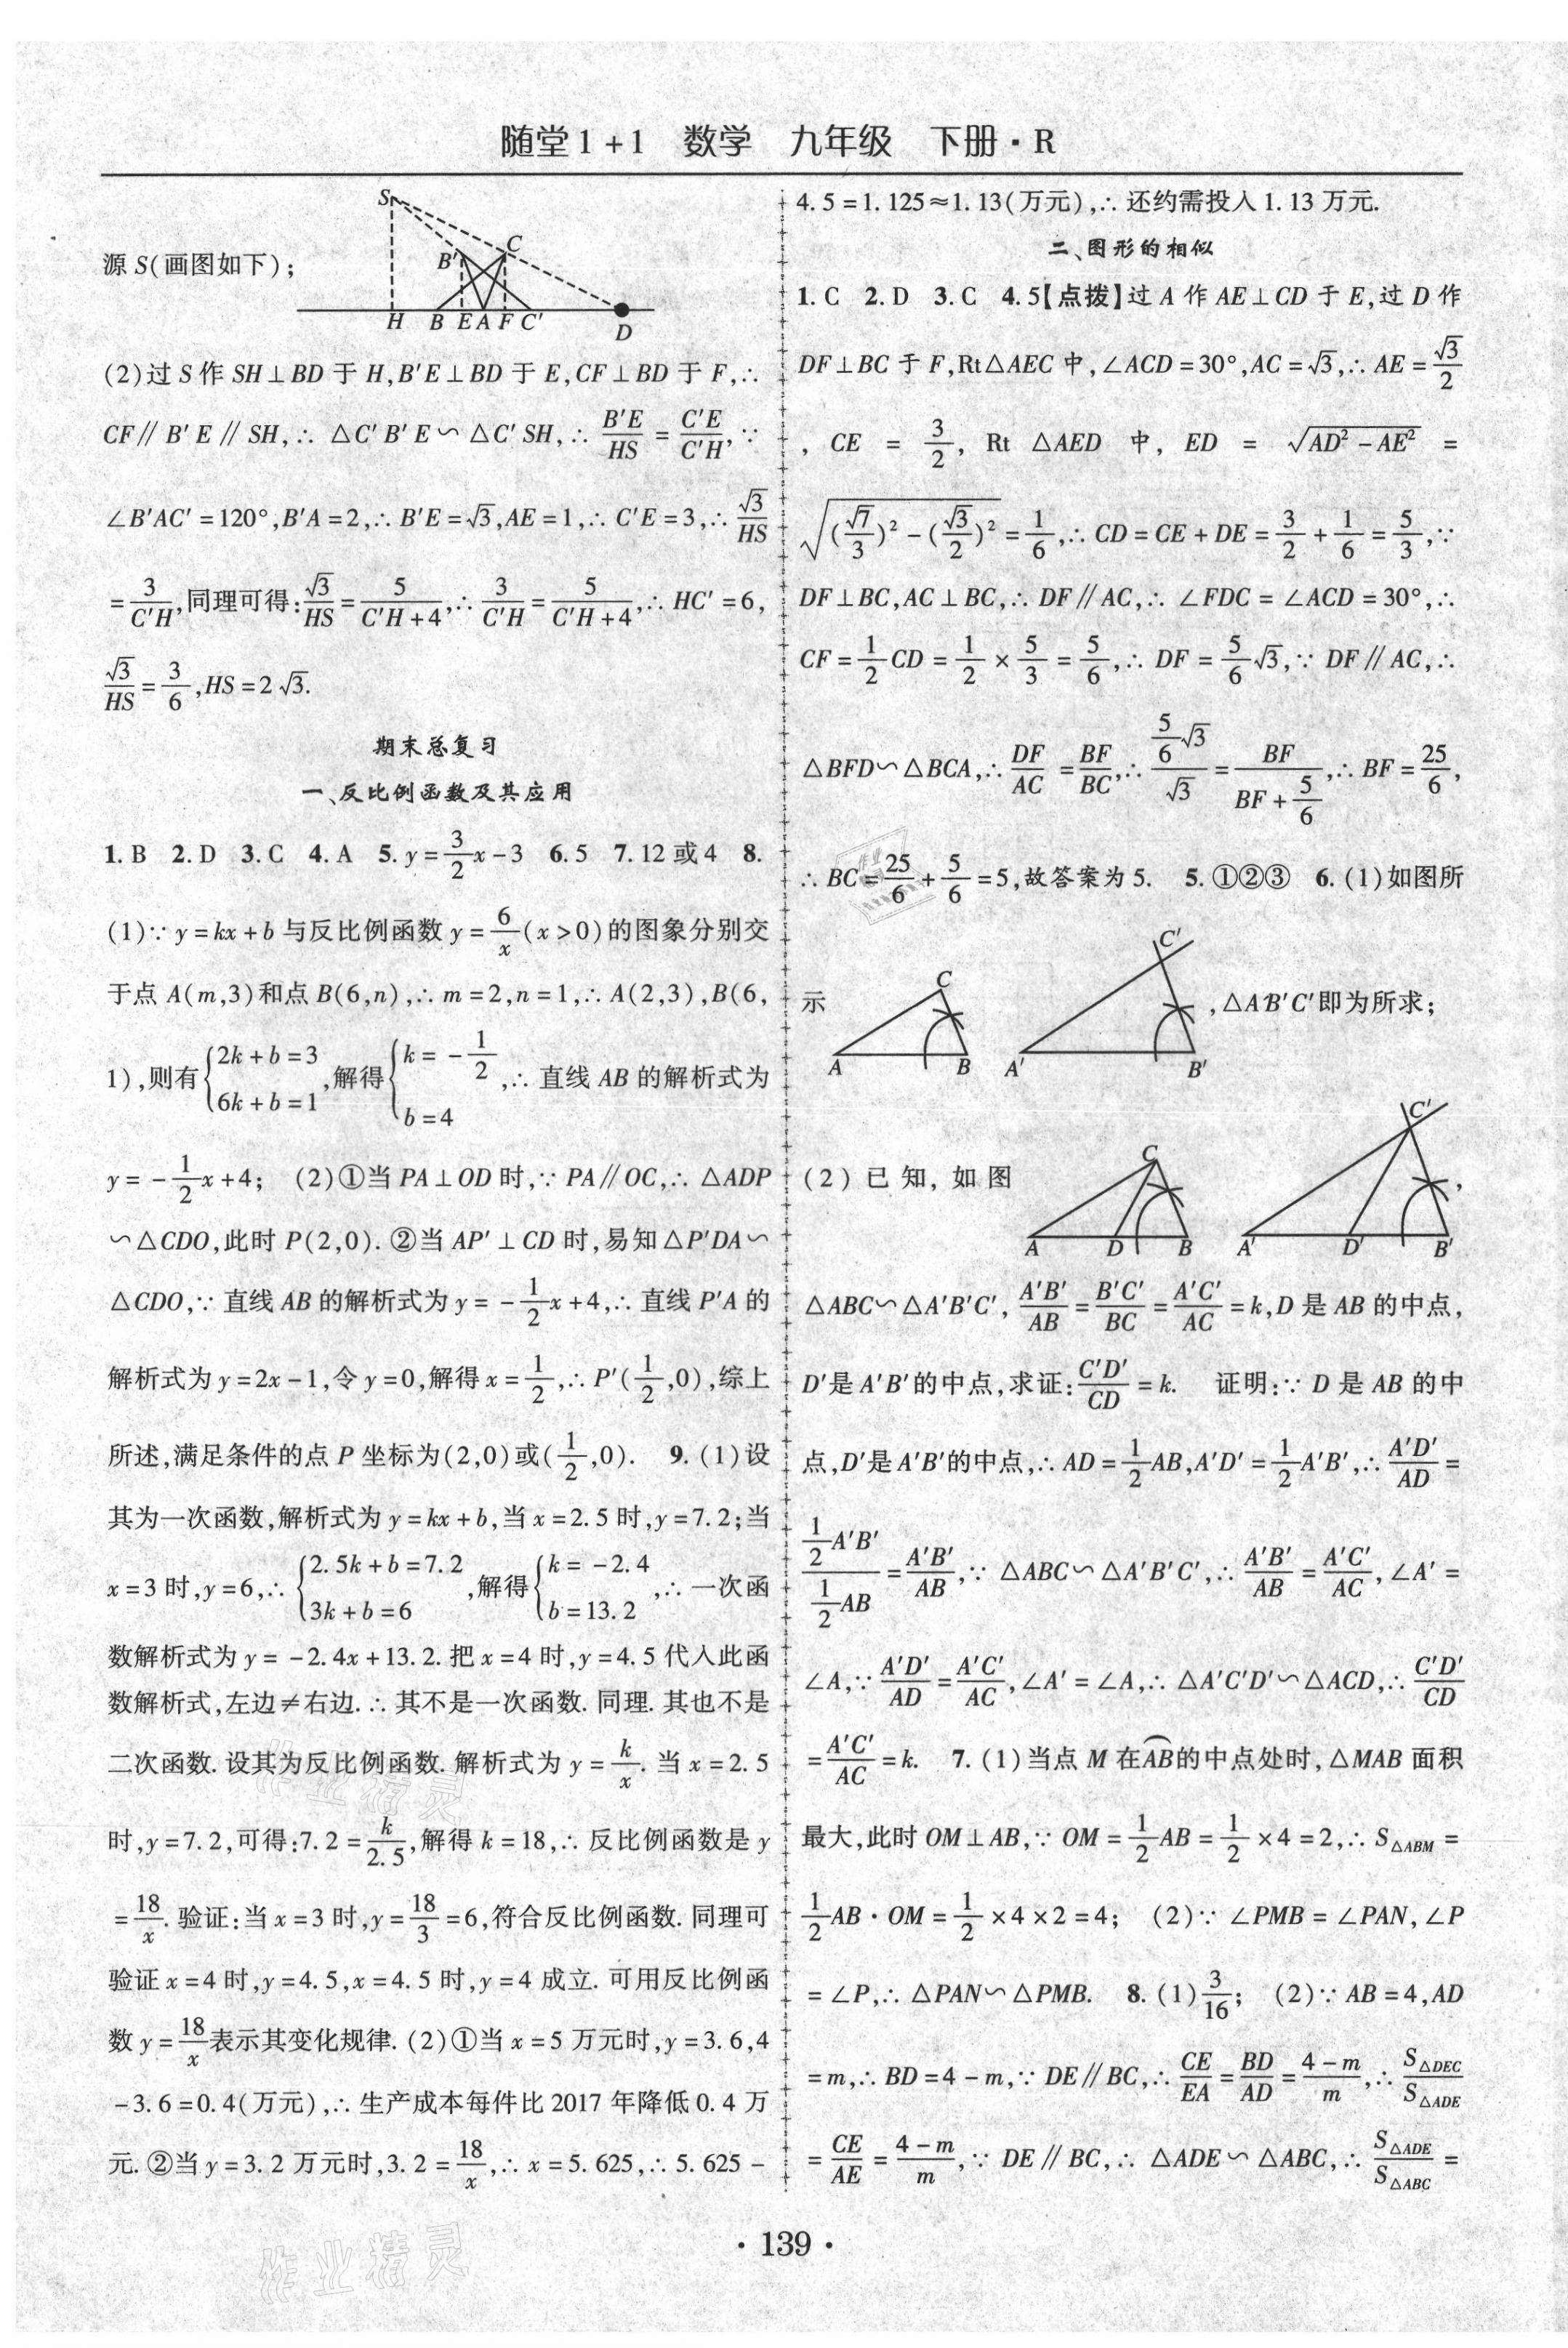 随堂1+1 数学 九年级 下册·R
S
C
B′
H B E A F C′
D
源S(画图如下);
(2)过S作SH⊥BD于H,B′E⊥BD于E,CF⊥BD于F,∴
CF∥B′E∥SH,∴△C′B′E∽△C′SH,∴B′E/HS=C′E/C′H,∵
∠B′AC′=120°,B′A=2,∴B′E=√3,AE=1,∴C′E=3,∴√3/HS
=3/C′H,同理可得:√3/HS=5/(C′H+4),∴3/C′H=5/(C′H+4),∴HC′=6,
√3/HS=3/6,HS=2√3.
期末总复习
一、反比例函数及其应用
1.B 2.D 3.C 4.A 5.y=3/2x-3 6.5 7.12或4 8.
(1)∵y=kx+b与反比例函数y=6/x(x>0)的图象分别交
于点A(m,3)和点B(6,n),∴m=2,n=1,∴A(2,3),B(6,
1),则有{2k+b=3 6k+b=1,解得{k=-1/2 b=4,∴直线AB的解析式为
y=-1/2x+4; (2)①当PA⊥OD时,∵PA∥OC,∴△ADP
∽△CDO,此时P(2,0).②当AP′⊥CD时,易知△P′DA∽
△CDO,∵直线AB的解析式为y=-1/2x+4,∴直线P′A的
解析式为y=2x-1,令y=0,解得x=1/2,∴P′(1/2,0),综上
所述,满足条件的点P坐标为(2,0)或(1/2,0). 9.(1)设
其为一次函数,解析式为y=kx+b,当x=2.5时,y=7.2;当
x=3时,y=6,∴{2.5k+b=7.2 3k+b=6,解得{k=-2.4 b=13.2,∴一次函
数解析式为y=-2.4x+13.2.把x=4时,y=4.5代入此函
数解析式,左边≠右边.∴其不是一次函数.同理.其也不是
二次函数.设其为反比例函数.解析式为y=k/x.当x=2.5
时,y=7.2,可得:7.2=k/2.5,解得k=18,∴反比例函数是y
=18/x.验证:当x=3时,y=18/3=6,符合反比例函数.同理可
验证x=4时,y=4.5,x=4.5时,y=4成立.可用反比例函
数y=18/x表示其变化规律.(2)①当x=5万元时,y=3.6,4
-3.6=0.4(万元),∴生产成本每件比2017年降低0.4万
元.②当y=3.2万元时,3.2=18/x,∴x=5.625,∴5.625-
4.5=1.125≈1.13(万元),∴还约需投入1.13万元.
二、图形的相似
1.C 2.D 3.C 4.5【点拨】过A作AE⊥CD于E,过D作
DF⊥BC于F,Rt△AEC中,∠ACD=30°,AC=√3,∴AE=√3/2
,CE=3/2,Rt△AED中,ED=√(AD²-AE²)=
√((√7/3)²-(√3/2)²)=1/6,∴CD=CE+DE=3/2+1/6=5/3,∵
DF⊥BC,AC⊥BC,∴DF∥AC,∴∠FDC=∠ACD=30°,∴
CF=1/2CD=1/2×5/3=5/6,∴DF=5/6√3,∵DF∥AC,∴
△BFD∽△BCA,∴DF/AC=BF/BC,∴(5/6√3)/√3=BF/(BF+5/6),∴BF=25/6,
∴BC=25/6+5/6=5,故答案为5. 5.①②③ 6.(1)如图所
示
C
A B
C′
A′ B′
,△A′B′C′即为所求;
(2)已知,如图
C
A D B
C′
A′ D′ B′
,
△ABC∽△A′B′C′,A′B′/AB=B′C′/BC=A′C′/AC=k,D是AB的中点,
D′是A′B′的中点,求证:C′D′/CD=k. 证明:∵D是AB的中
点,D′是A′B′的中点,∴AD=1/2AB,A′D′=1/2A′B′,∴A′D′/AD=
(1/2A′B′)/(1/2AB)=A′B′/AB,∵△ABC∽△A′B′C′,∴A′B′/AB=A′C′/AC,∠A′=
∠A,∵A′D′/AD=A′C′/AC,∠A′=∠A,∴△A′C′D′∽△ACD,∴C′D′/CD
=A′C′/AC=k. 7.(1)当点M在⌒AB的中点处时,△MAB面积
最大,此时OM⊥AB,∵OM=1/2AB=1/2×4=2,∴S△ABM=
1/2AB·OM=1/2×4×2=4; (2)∵∠PMB=∠PAN,∠P
=∠P,∴△PAN∽△PMB. 8.(1)3/16; (2)∵AB=4,AD
=m,∴BD=4-m,∵DE∥BC,∴CE/EA=BD/AD=(4-m)/m,∴S△DEC/S△ADE
=CE/AE=(4-m)/m,∵DE∥BC,∴△ADE∽△ABC,∴S△ADE/S△ABC=
·139·
作业精灵
作业精灵